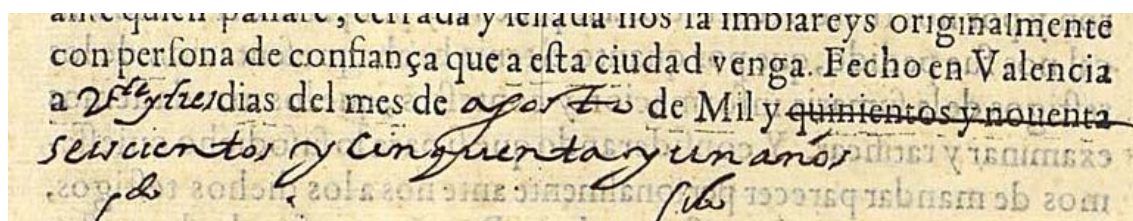 ante quien passare, cerrada y sellada nos la imbiareys originalmente
con persona de confiança que a esta ciudad venga. Fecho en Valencia
a Vte y tres dias del mes de agosto de Mil y quinientos y nouenta
seiscientos y cinquenta y un años